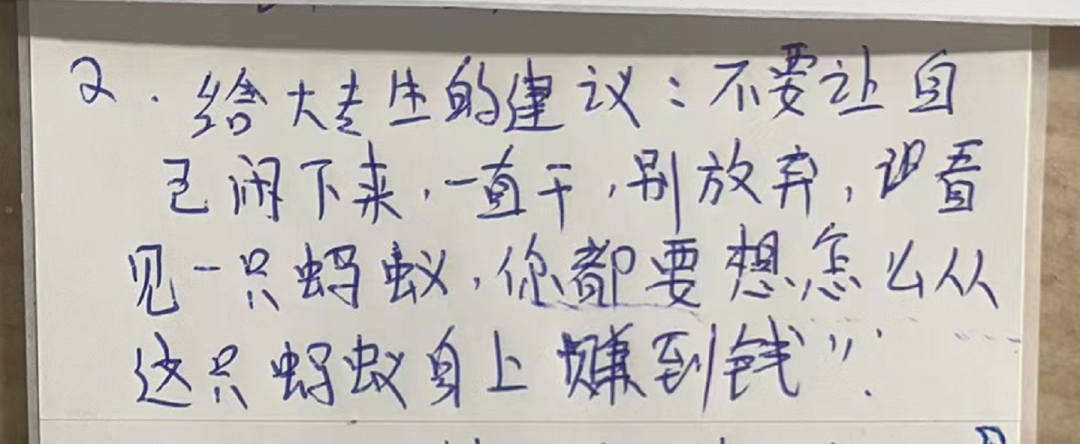 2. 给大专生的建议：不要让自
己闲下来，一直干，别放弃，识看
见一只蚂蚁，你都要想怎么从
这只蚂蚁身上赚到钱”.